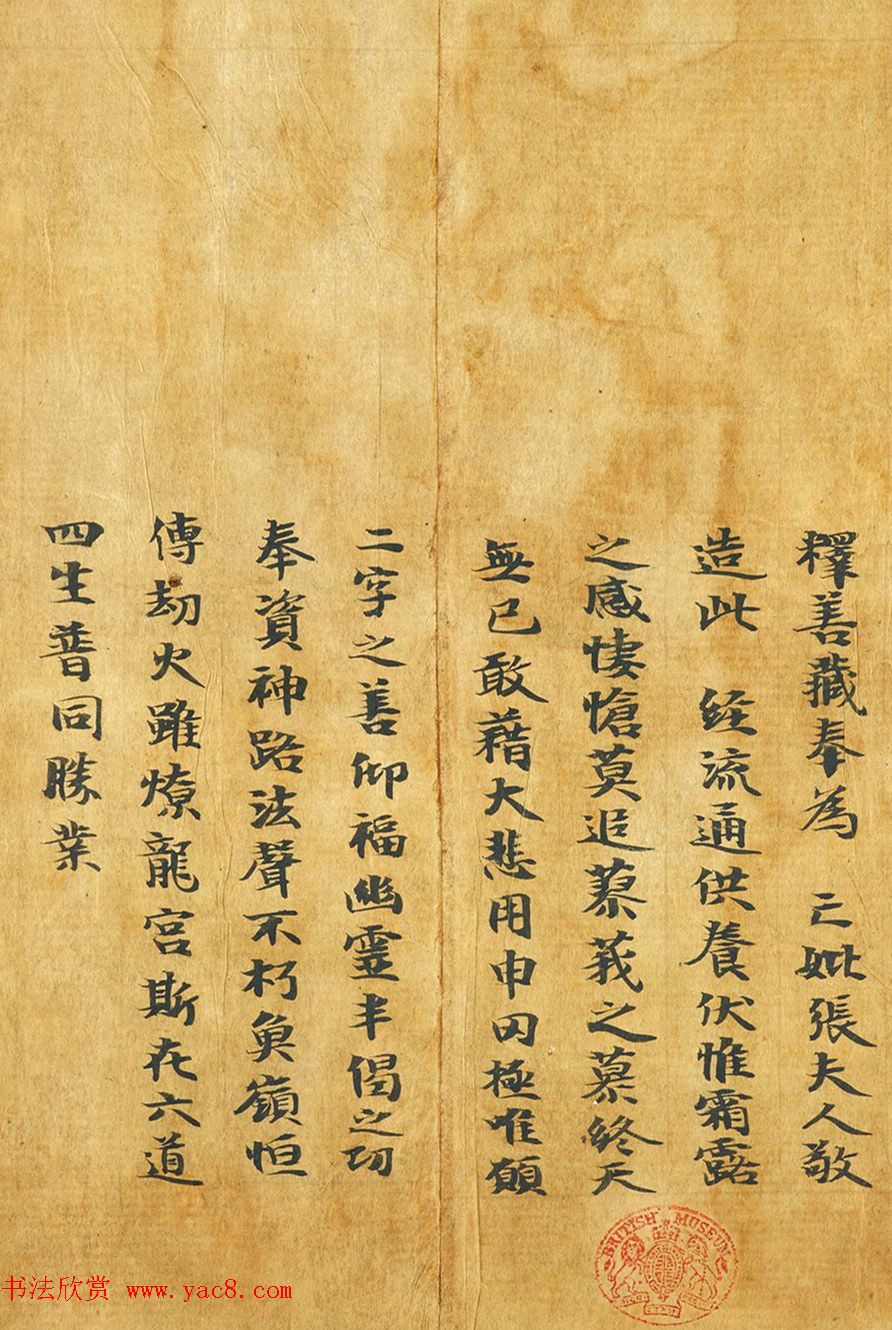 釋善藏奉為 亡妣張夫人敬
造此 経流通供養伏惟霜露
之感悽愴莫追蔡莪之慕終天
無已敢藉大悲用申罔極唯願
二字之善仰福幽靈半偈之功
奉資神路法聲不朽魚嶺恒
傳劫火雖燎龍宮斯在六道
四生普同勝業
BRITISH MUSEUM
书法欣赏 www.yac8.com